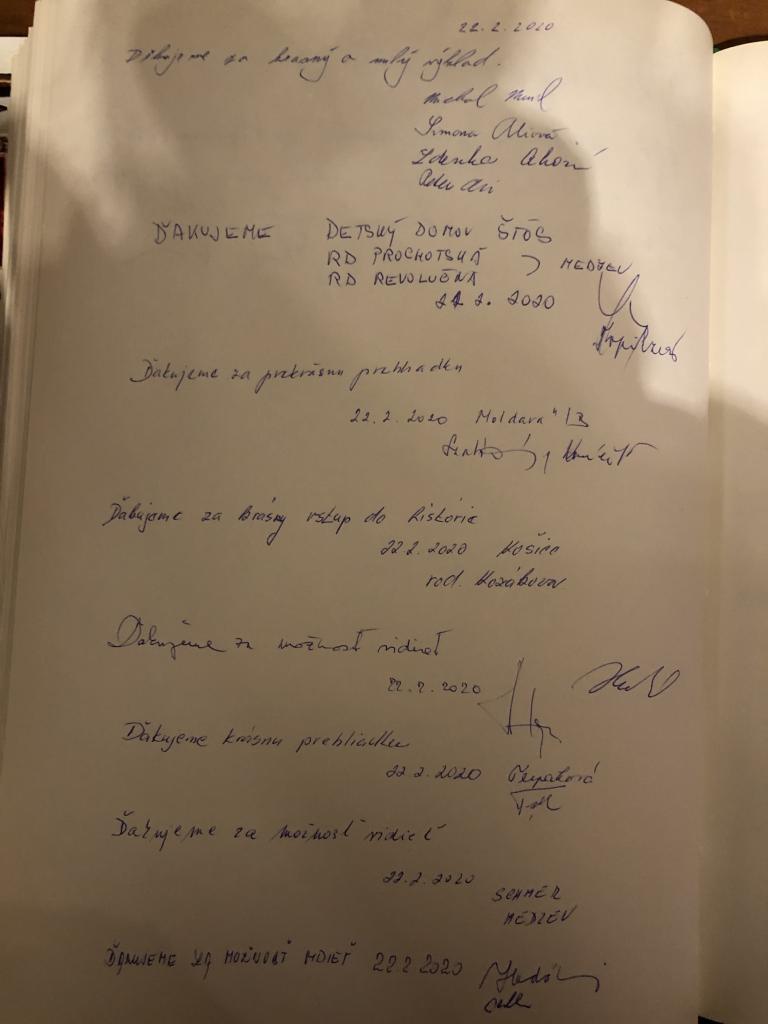 22.2.2020
Ďakujeme za krasný a milý výklad.
Michal
Simona
Zdenka
Peter
ĎAKUJEME DETSKÝ DOMOV ŠTÓS
RD PROCHOTSKÁ
RD REVOLUČNÁ } MEDZEV
22. 2. 2020
Ďakujeme za prekrásnu prehliadku
22.2.2020 Moldava n/B
Ďakujeme za krásny vstup do histórie
22.2.2020 Košice
rod. Kozákova
Ďakujeme za možnosť vidieť
22.2.2020
Ďakujeme krásnu prehliadku
22.2.2020
Ďakujeme za možnosť vidieť
22.2.2020
SCHMER
MEDZEV
ĎAKUJEME ZA MOŽNOSŤ VIDIEŤ 22.2 2020